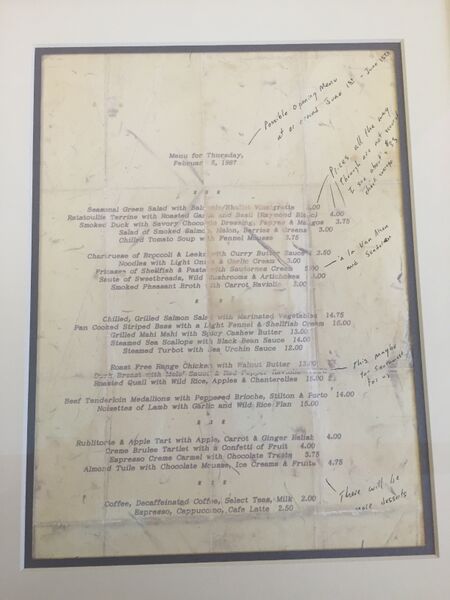 Possible Opening Menu
at or around June 1st - June 15th
Menu for Thursday,
February 5, 1987
Prices all the way
through are not
I see about
Seasonal Green Salad with Shallot Vinaigrette 3.00
Ratatouille Terrine with Roasted Garlic and Basil (Raymond Blanc) 4.00
Smoked Duck with Savory Chocolate Dressing, Papaya & Mangos 3.75
Salad of Smoked Salmon, Melon, Berries & Greens 3.00
Chilled Tomato Soup with Fennel Mousse 3.75
Chartreuse of Broccoli & Leeks with Curry Butter Sauce 2.50
Noodles with Light Onion & Garlic Cream 3.00
Fricasee of Shellfish & Pasta with Sauternes Cream 5.00
Saute of Sweetbreads, Wild Mushrooms & Artichokes
Smoked Pheasant Broth with Carrot Raviolis 3.00
Chilled, Grilled Salmon Salad with Marinated Vegetables 14.75
Pan Cooked Striped Bass with a Light Fennel & Shellfish Cream 15.00
Grilled Mahi Mahi with Spicy Cashew Butter 13.00
Steamed Sea Scallops with Black Bean Sauce 14.00
Steamed Turbot with Sea Urchin Sauce 12.00
Roast Free Range Chicken with Walnut Butter
Duck Breast with
Roasted Quail with Wild Rice, Apples & Chanterelles 15.00
This maybe
too
for us
Beef Tenderloin Medallions with Peppered Brioche, Stilton & Porto 14.00
Noisettes of Lamb with Garlic and Wild Rice Flan 15.00
Apple Tart with Apple, Carrot & Ginger 4.00
Creme Brulee Tartlet with a Confetti of Fruit 4.00
Espresso Creme Carmel with Chocolate Treats 3.75
Almond Tuile with Chocolate Mousse, Ice Creams & Fruits 4.75
There will be
more desserts
Coffee, Decaffeinated Coffee, Select Teas, Milk 2.00
Espresso, Cappuccino, Cafe Latte 2.50